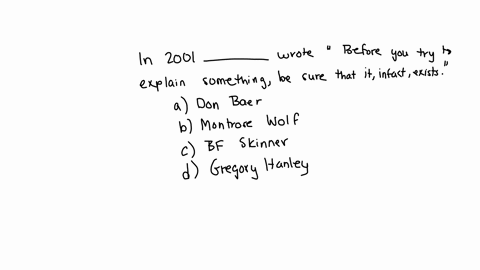 In 2001 ________ wrote " Before you try to
explain something, be sure that it, infact, exists."
a) Don Baer
b) Montrose Wolf
c) BF Skinner
d) Gregory Hanley